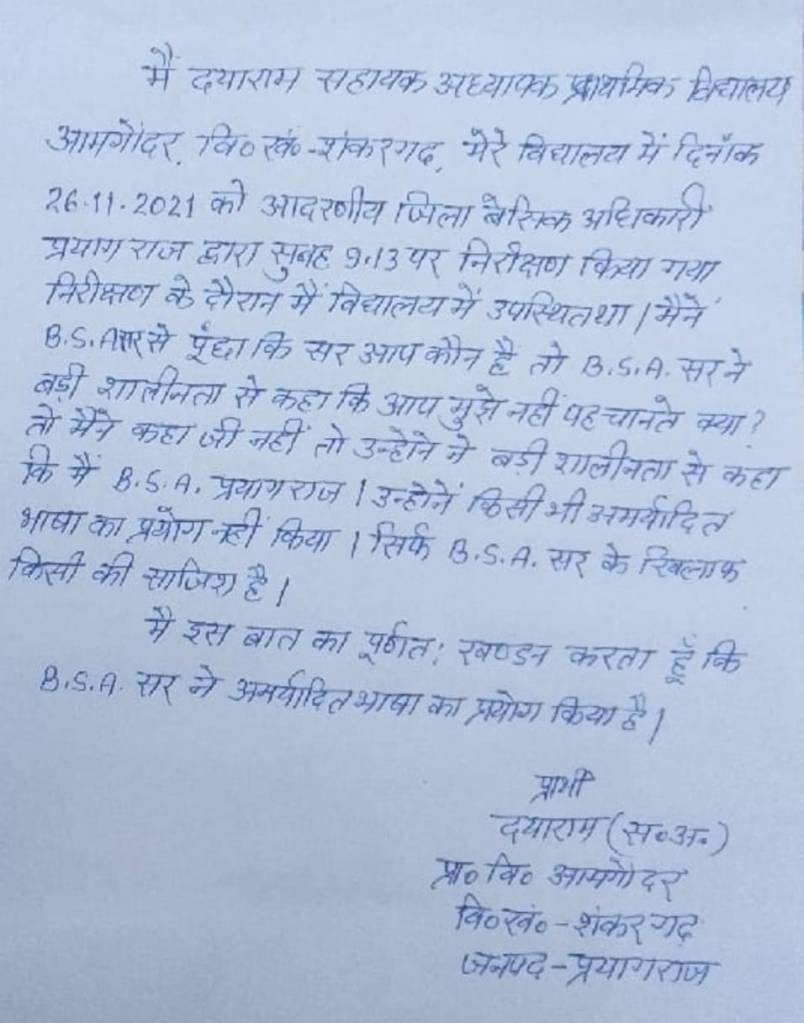 मैं दयाराम सहायक अध्यापक प्राथमिक विद्यालय
आमगोंदर, वि० खं०-शंकरगढ़, मेरे विद्यालय में दिनाँक
26.11.2021 को आदरणीय जिला बेसिक अधिकारी
प्रयाग राज द्वारा सुबह 9.13 पर निरीक्षण किया गया
निरीक्षण के दौरान मैं विद्यालय में उपस्थित था। मैंने
B.S.A सर से पूंछा कि सर आप कौन है तो B.S.A. सर ने
बड़ी शालीनता से कहा कि आप मुझे नहीं पहचानते क्या?
तो मैंने कहा जी नहीं तो उन्होने ने बड़ी शालीनता से कहा
कि मैं B.S.A. प्रयागराज। उन्होनें किसी भी अमर्यादित
भाषा का प्रयोग नहीं किया। सिर्फ B.S.A. सर के खिलाफ
किसी की साजिश है।
मै इस बात का पूर्णत: खण्डन करता हूँ कि
B.S.A. सर ने अमर्यादित भाषा का प्रयोग किया है।
प्रार्थी
दयाराम (स०अ०)
प्रा० वि० आमगोंदर
वि०खं०-शंकरगढ़
जनपद-प्रयागराज